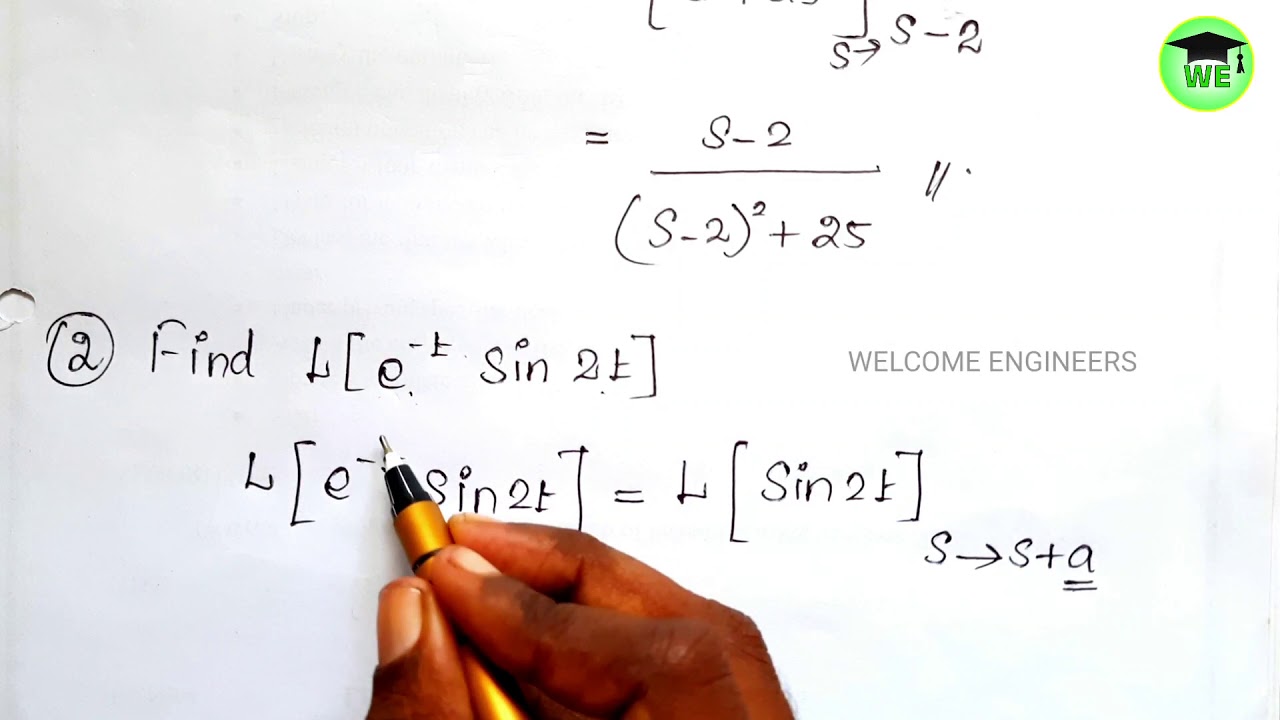 S→ S-2
WE
= S-2
(S-2)² + 25 //.
② Find L[e^-t Sin 2t]
WELCOME ENGINEERS
L[e^- Sin2t] = L[Sin2t]
S→S+a